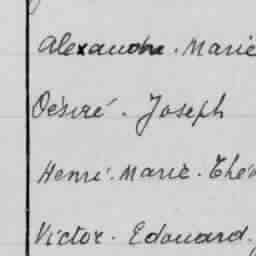 Alexandre. Marie
Désiré. Joseph
Henri. Marie. Thé
Victor. Edouard.